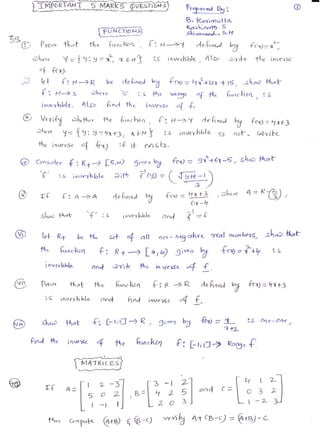 IMPORTANT 5 MARKS QUESTIONS
Prepared By:
①
B. Kavimulla
S.H
FUNCTIONS
39
① Prove that the function, f: N→Y defined by f(x) = x²,
where Y = {y: y = x², x ∈ N} is invertible, Also write the inverse
of f(x)
② let f: N→R be defined by f(x) = 4x²+12x+15, show that
f: N→S where 'S' is the range of the function, is
invertible. Also find the inverse of f.
③ Verify whether the function, f: N→Y defined by f(x) = 4x+3
where Y = {y: y = 4x+3, x ∈ N} is invertible or not. Write
the inverse of f(x) if it exists.
Consider f: R₊→[5,∞) given by f(x) = 9x²+6x-5, show that
'f' is invertible with f⁻¹(y) = (√y+6 -1 / 3)
Ⓥ If f: A→A defined by f(x) = 4x+3 / 6x-4, where A = R-{2/3},
show that 'f' is invertible and f⁻¹ = f
ⓋⅠ let R₊ be the set of all non-negative real numbers, show that
the function f: R₊→[4,∞) given by f(x) = x²+4 is
invertible and write the inverse of f.
ⓋⅡ Prove that the function f: R→R defined by f(x) = 4x+3
is invertible and find inverse of f.
ⓋⅢ Show that f: [-1,1]→R, given by f(x) = x / x+2 is one-one,
Find the inverse of the function f: [-1,1]→ Range f.
MATRICES
40 If A = [1 2 -3 / 5 0 2 / 1 -1 1], B = [3 -1 2 / 4 2 5 / 2 0 3] and C = [4 1 2 / 0 3 2 / 1 -2 3]
then Compute (A+B) & (B-C) verify A+(B-C) = (A+B)-C